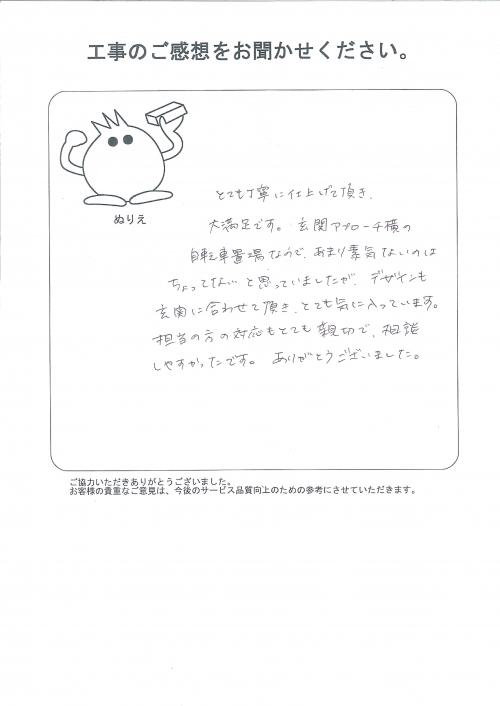 工事のご感想をお聞かせください。
ぬりえ
とても丁寧に仕上げて頂き、
大満足です。玄関アプローチ横の
自転車置場なので、あまり素気ないのは
ちょってなぃと思っていましたが、デザインも
玄関に合わせて頂き、とても気に入っています。
担当の方の対応もとても親切で、相談
しやすかったです。ありがとうございました。
ご協力いただきありがとうございました。
お客様の貴重なご意見は、今後のサービス品質向上のための参考にさせていただきます。